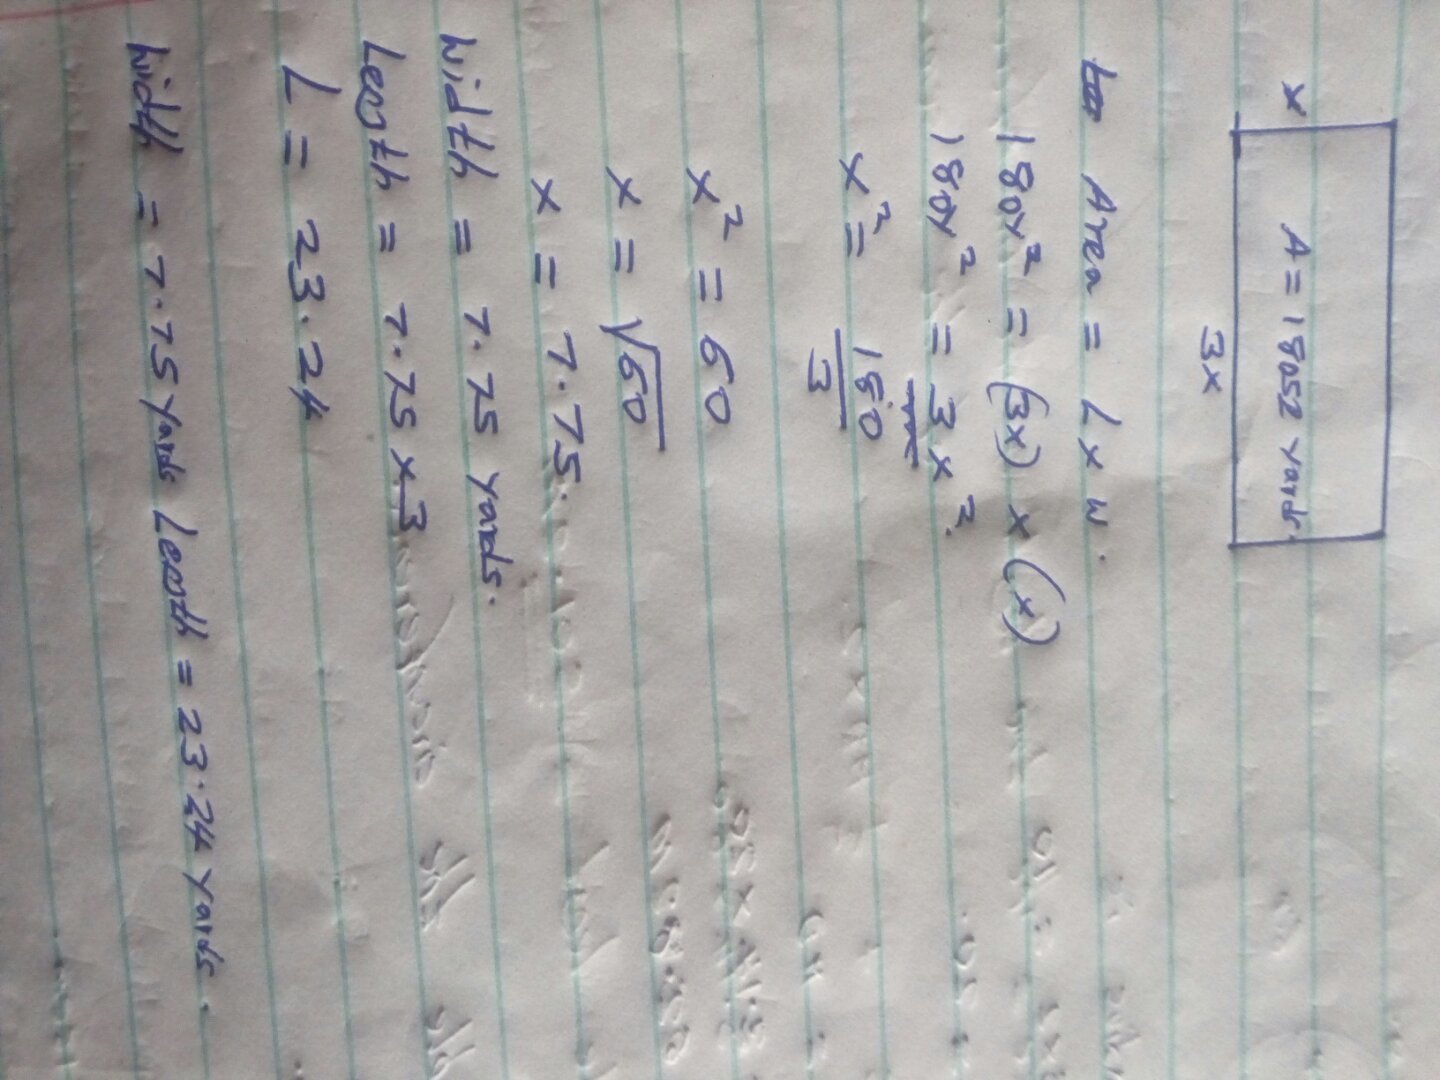 x
A = 180 S2 Yards
3x
Area = L x W.
180Y² = (3x) x (x)
180Y² = 3x².
x² = 180
3
x² = 60
x = √60
x = 7.75.
Width = 7.75 Yards.
Length = 7.75 x 3
L = 23.24
Width = 7.75 Yards Length = 23.24 Yards.